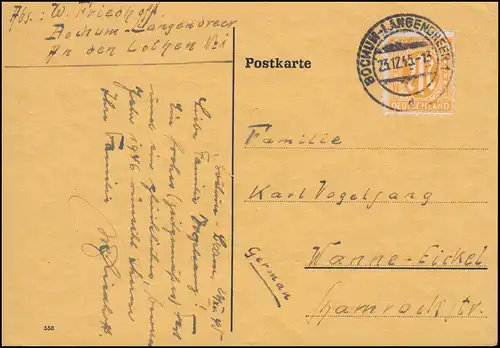 Abs.: W. Friedhoff.
Bochum-Langendreer
An den Lothen Nr. 1
Postkarte
BOCHUM-LANGENDREER
23.12.45.-15
DEUTSCHLAND
Familie
Karl Vogelsang
Wanne-Eickel
Shamrockstr.
German
Bochum-
Liebe Familie Vogelsang!
Ein frohes (zeitgemäßes) Fest
und ein glückliches,
Jahr 1946 wünscht Ihnen
Ihre Familie
W. Friedhoff.
558